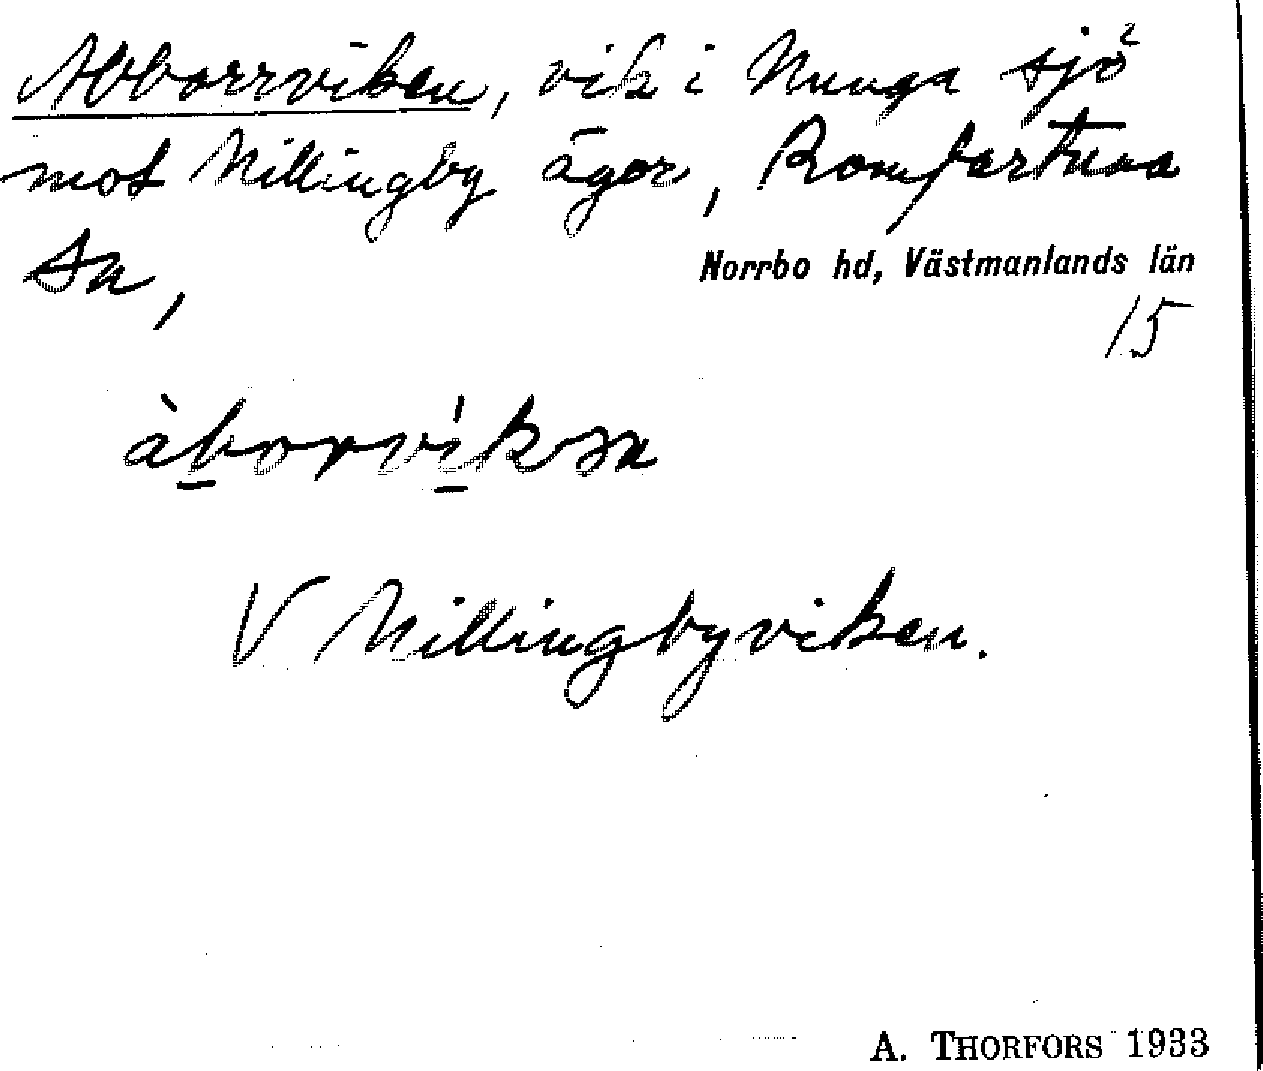 Abborrviken, vik i Nunga sjö
mot Nillingby ägor, Romfartuna
sn,
Norrbo hd, Västmanlands län
15
àborvíksn
V Nillingbyviken.
A. THORFORS 1933